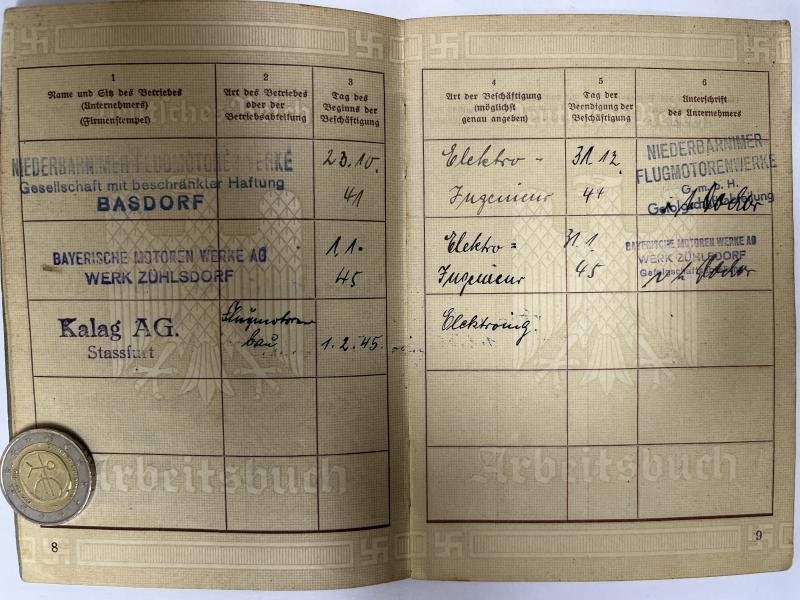 1
Name und Sitz des Betriebes
(Unternehmers)
(Firmenstempel)
2
Art des Betriebes
oder der
Betriebsabteilung
3
Tag des
Beginns der
Beschäftigung
4
Art der Beschäftigung
(möglichst
genau angeben)
5
Tag der
Beendigung der
Beschäftigung
6
Unterschrift
des Unternehmers
NIEDERBARNIMER FLUGMOTORENWERKE
Gesellschaft mit beschränkter Haftung
BASDORF
23.10.
41
Elektro-
Ingenieur
31.12.
44
NIEDERBARNIMER
FLUGMOTORENWERKE
G. m. b. H.
BAYERISCHE MOTOREN WERKE AG
WERK ZÜHLSDORF
1.1.
45
Elektro=
Ingenieur
31.1.
45
BAYERISCHE MOTOREN WERKE AG
WERK ZÜHLSDORF
Kalag AG.
Stassfurt
Flugmotoren
bau
1.2.45.
Elektroing.
Arbeitsbuch
Arbeitsbuch
8
9